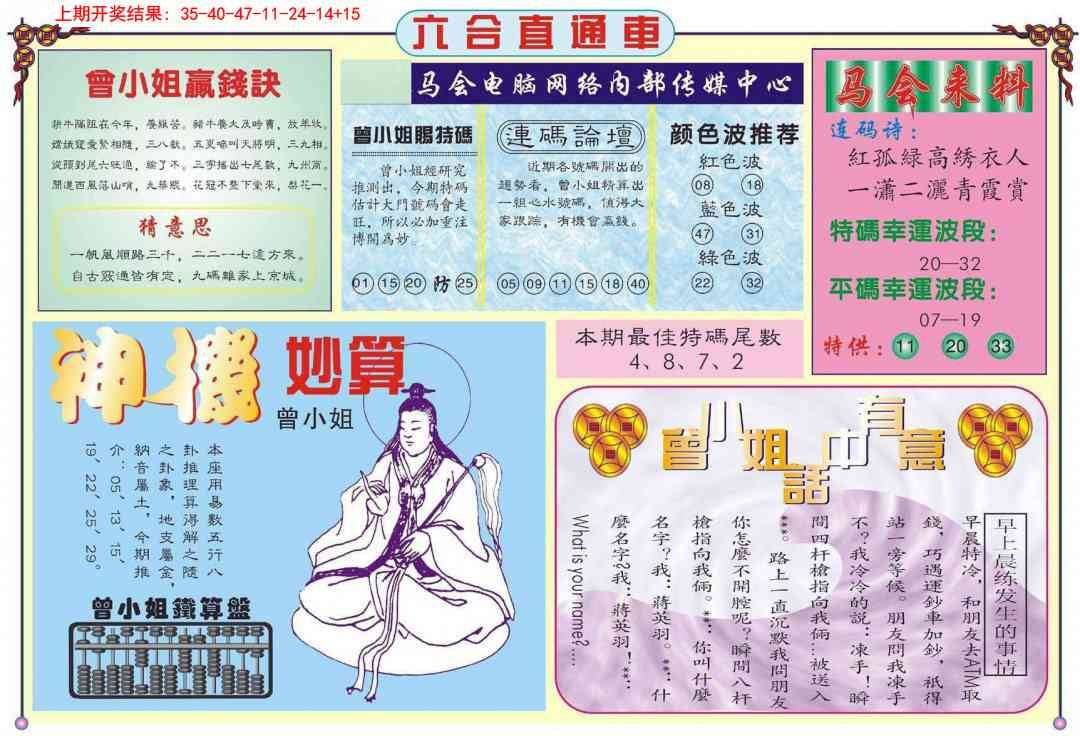 上期开奖结果：35-40-47-11-24-14+15
六合直通車
曾小姐贏錢訣
開進西風落山哨，九築眼。花冠不整下堂來，梨花一。
猜意思
一帆風順路三千，二二一七遠方來。
自古窮通皆有定，九碼離家上京城。
马会电脑网络内部传媒中心
曾小姐賜特碼
曾小姐經研究
推測出，今期特碼
估計大門號碼會走
旺，所以必加重注
博開為妙。
01 15 20 防 25
連碼論壇
近期各號碼開出的
趨勢看，曾小姐精算出
一組心水號碼，值得大
家跟踪，有機會贏錢。
05 09 11 15 18 40
颜色波推荐
紅色波
08 18
藍色波
47 31
綠色波
22 32
马会来料
连码诗：
紅孤緑高綉衣人
一瀟二灑青霞賞
特碼幸運波段：
20—32
平碼幸運波段：
07—19
特供：11 20 33
神機
妙算
曾小姐
本座用易數五行八
卦推理算得解之隨
之卦象，地支屬金，
納音屬土，今期推
介：05、13、15、
19、22、25、29。
曾小姐鐵算盤
本期最佳特碼尾數
4、8、7、2
曾小姐話中有意
早上晨练发生的事情
早晨特冷，和朋友去ATM取
錢，巧遇運鈔車加鈔，祇得
站一旁等候。朋友問我凍手
不？我冷冷的説：凍手！瞬
間四杆槍指向我倆…被送入
***。路上一直沉默我問朋友
你怎麼不開腔呢？瞬間八杆
槍指向我倆。**：你叫什麼
名字？我：蔣英羽。**：什
麼名字？我：蔣英羽！**：
What is your name?....